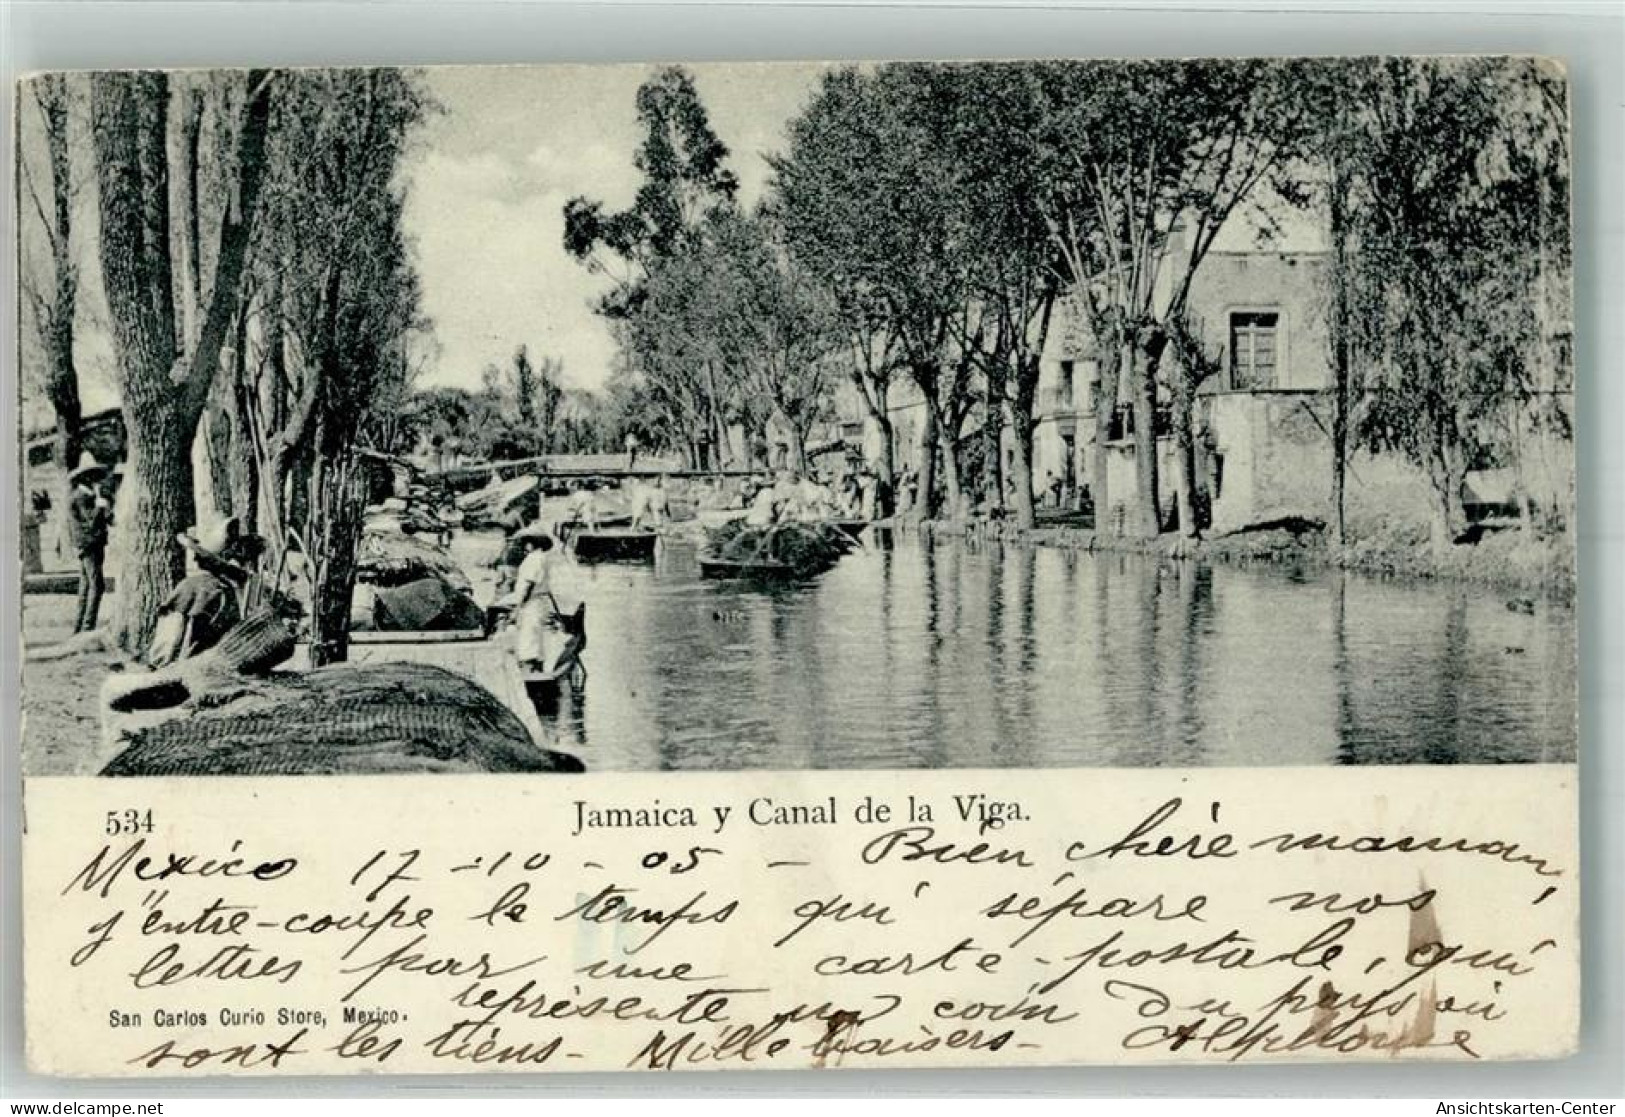 534
Jamaica y Canal de la Viga.
Mexico 17-10-05 - Bien chère maman,
j'entre-coupe le temps qui sépare nos
lettres par une carte-postale, qui
représente un coin du pays où
San Carlos Curio Store, Mexico.
sont les tiens - Mille baisers - Alphonse
Ansichtskarten-Center